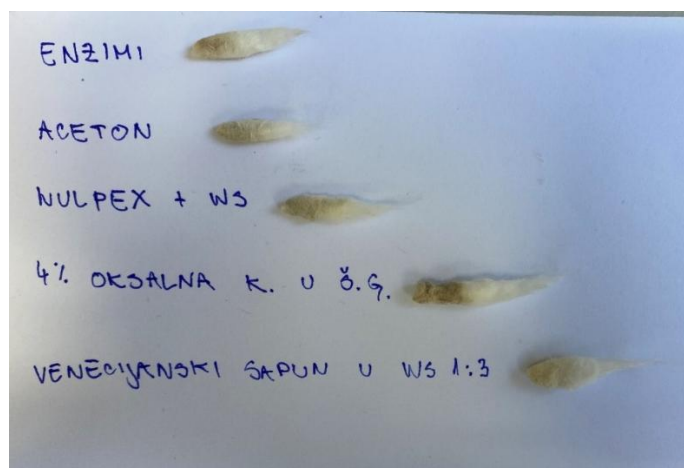 ENZIMI
ACETON
WULPEX + WS
4% OKSALNA K. U Š.G.
VENECIJANSKI SAPUN U WS 1:3